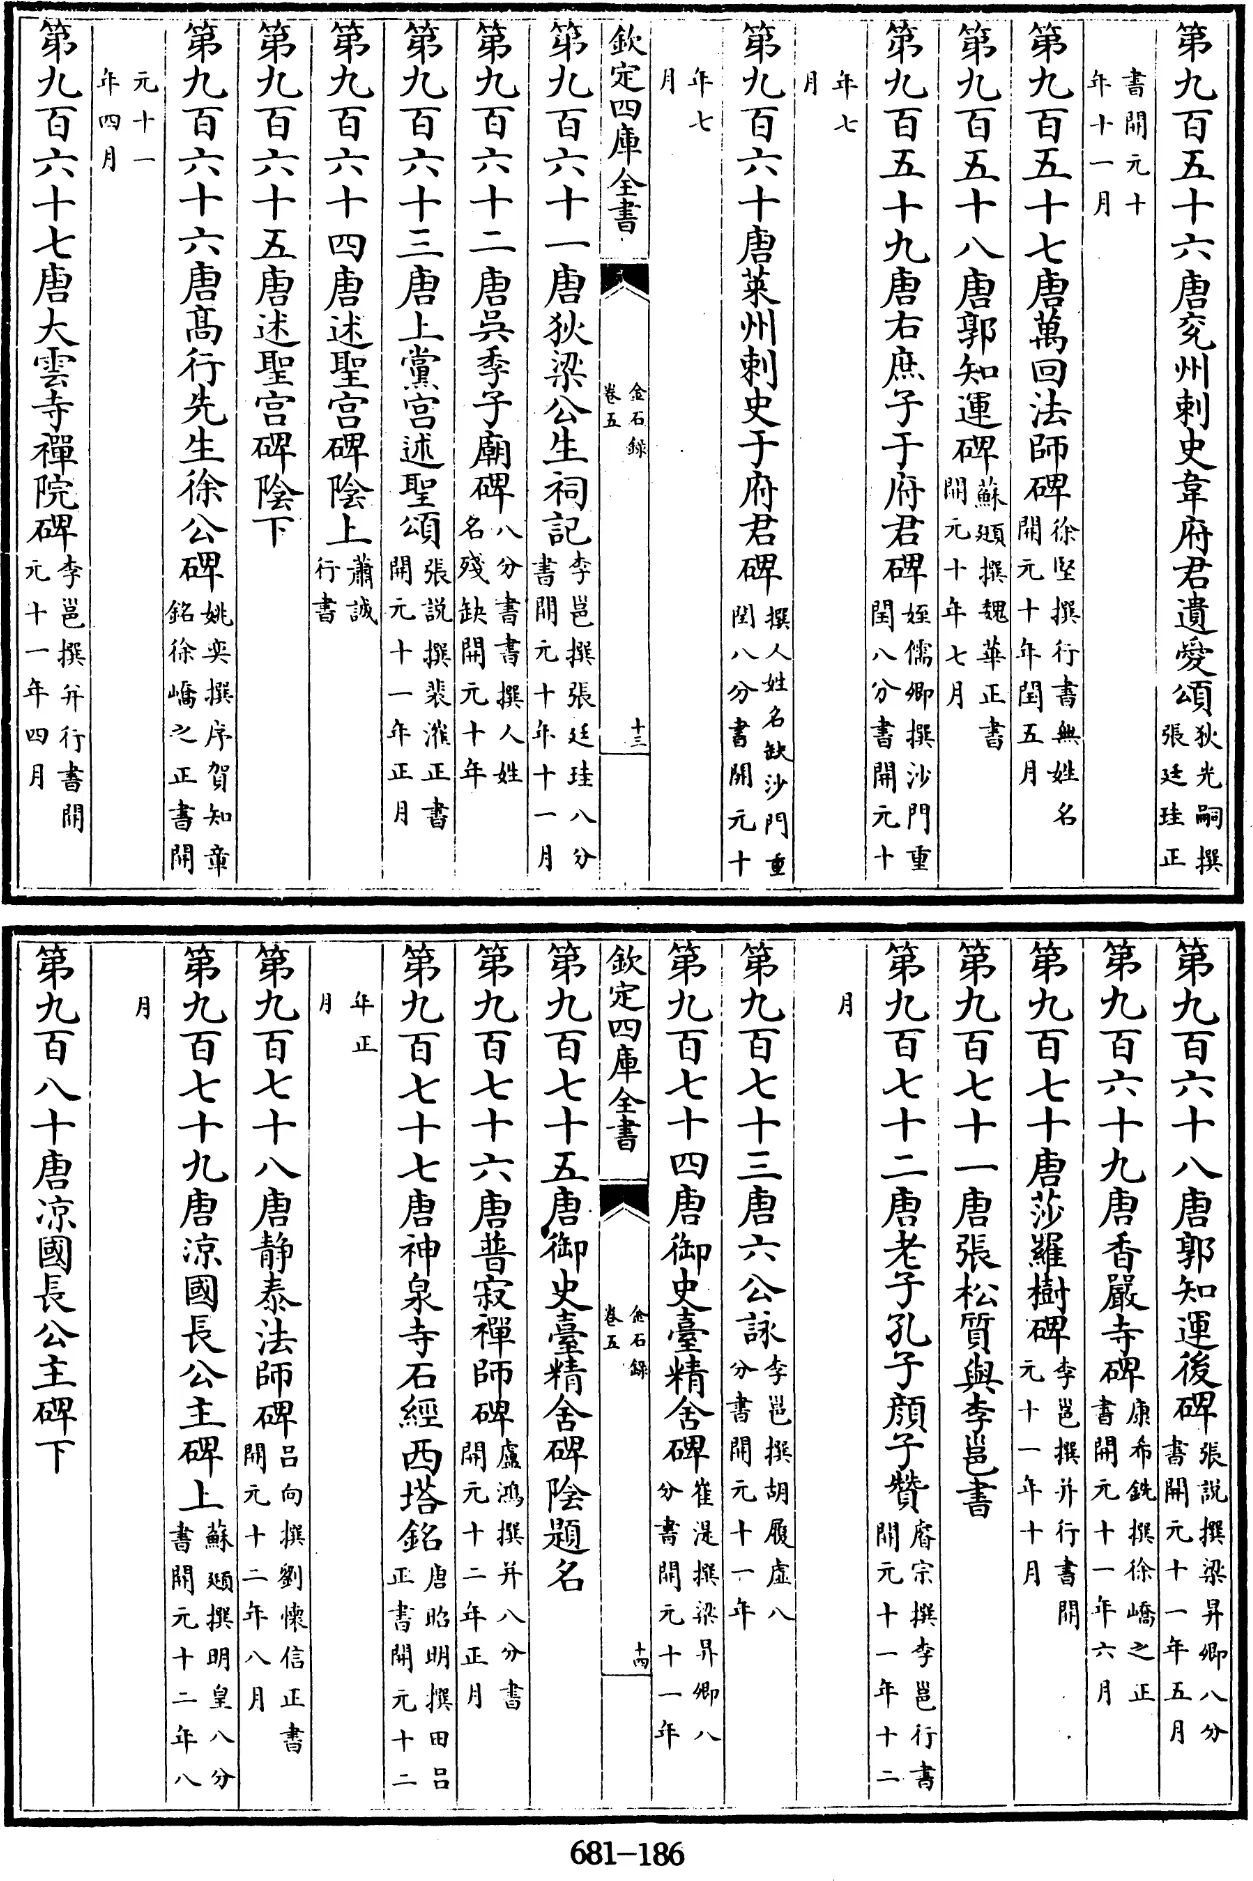 第九百五十六唐兗州刺史韋府君遺愛頌狄光嗣撰張廷珪正
書開元十年十一月
第九百五十七唐萬回法師碑徐堅撰行書無姓名開元十年閏五月
第九百五十八唐郭知運碑蘇頲撰魏華正書開元十年七月
第九百五十九唐右庶子于府君碑姪儒卿撰沙門重閏八分書開元十
年七月
第九百六十唐萊州刺史于府君碑撰人姓名缺沙門重閏八分書開元十
年七月
欽定四庫全書 金石錄卷五 十三
第九百六十一唐狄梁公生祠記李邕撰張廷珪八分書開元十年十一月
第九百六十二唐吳季子廟碑八分書書撰人姓名殘缺開元十年
第九百六十三唐上黨宮述聖頌張說撰裴漼正書開元十一年正月
第九百六十四唐述聖宮碑陰上蕭誠行書
第九百六十五唐述聖宮碑陰下
第九百六十六唐髙行先生徐公碑姚奕撰序賀知章銘徐嶠之正書開
元十一年四月
第九百六十七唐大雲寺禪院碑李邕撰并行書開元十一年四月
第九百六十八唐郭知運後碑張說撰梁昇卿八分書開元十一年五月
第九百六十九唐香嚴寺碑康希銑撰徐嶠之正書開元十一年六月
第九百七十唐莎羅樹碑李邕撰并行書開元十一年十月
第九百七十一唐張松質與李邕書
第九百七十二唐老子孔子顔子贊睿宗撰李邕行書開元十一年十二
月
第九百七十三唐六公詠李邕撰胡履虛八分書開元十一年
第九百七十四唐御史臺精舍碑崔湜撰梁昇卿八分書開元十一年
欽定四庫全書 金石錄卷五 十四
第九百七十五唐御史臺精舍碑陰題名
第九百七十六唐普寂禪師碑盧鴻撰并八分書開元十二年正月
第九百七十七唐神泉寺石經西塔銘唐昭明撰田呂正書開元十二
年正月
第九百七十八唐静泰法師碑呂向撰劉懷信正書開元十二年八月
第九百七十九唐凉國長公主碑上蘇頲撰明皇八分書開元十二年八
月
第九百八十唐凉國長公主碑下
681-186